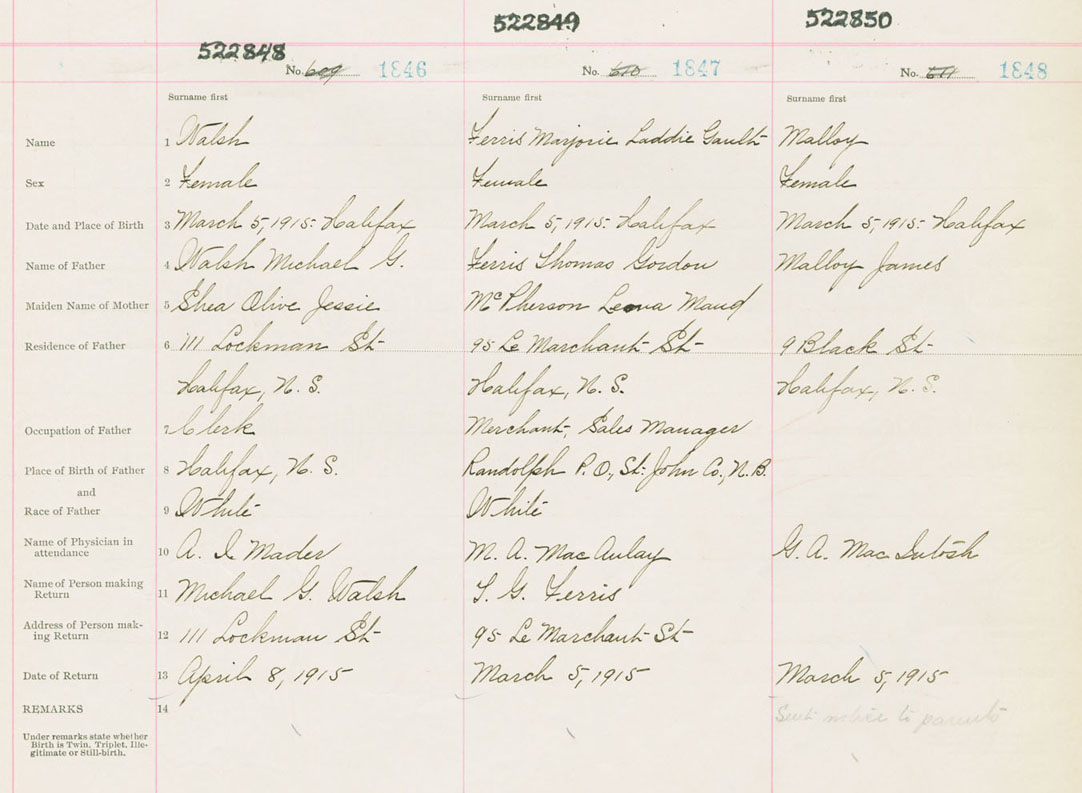 522848 522849 522850
No. 609 1846 No. 610 1847 No. 611 1848
Surname first Surname first Surname first
Name 1 Walsh Ferris Marjorie Laddie Gault Malloy
Sex 2 Female Female Female
Date and Place of Birth 3 March 5, 1915 - Halifax March 5, 1915 - Halifax March 5, 1915 - Halifax
Name of Father 4 Walsh Michael G. Ferris Thomas Gordon Malloy James
Maiden Name of Mother 5 Shea Olive Jessie McPherson Leona Maud
Residence of Father 6 111 Lockman St 95 Le Marchant St 9 Black St
Halifax, N. S. Halifax, N. S. Halifax, N. S.
Occupation of Father 7 Clerk Merchant, Sales Manager
Place of Birth of Father 8 Halifax, N. S. Randolph P.O., St. John Co., N.B.
and
Race of Father 9 White White
Name of Physician in
attendance 10 A. I. Mader M. A. MacAulay G. A. MacIntosh
Name of Person making
Return 11 Michael G. Walsh T. G. Ferris
Address of Person mak-
ing Return 12 111 Lockman St 95 Le Marchant St
Date of Return 13 April 8, 1915 March 5, 1915 March 5, 1915
REMARKS 14 Sent notice to parents
Under remarks state whether
Birth is Twin, Triplet, Ille-
gitimate or Still-birth.